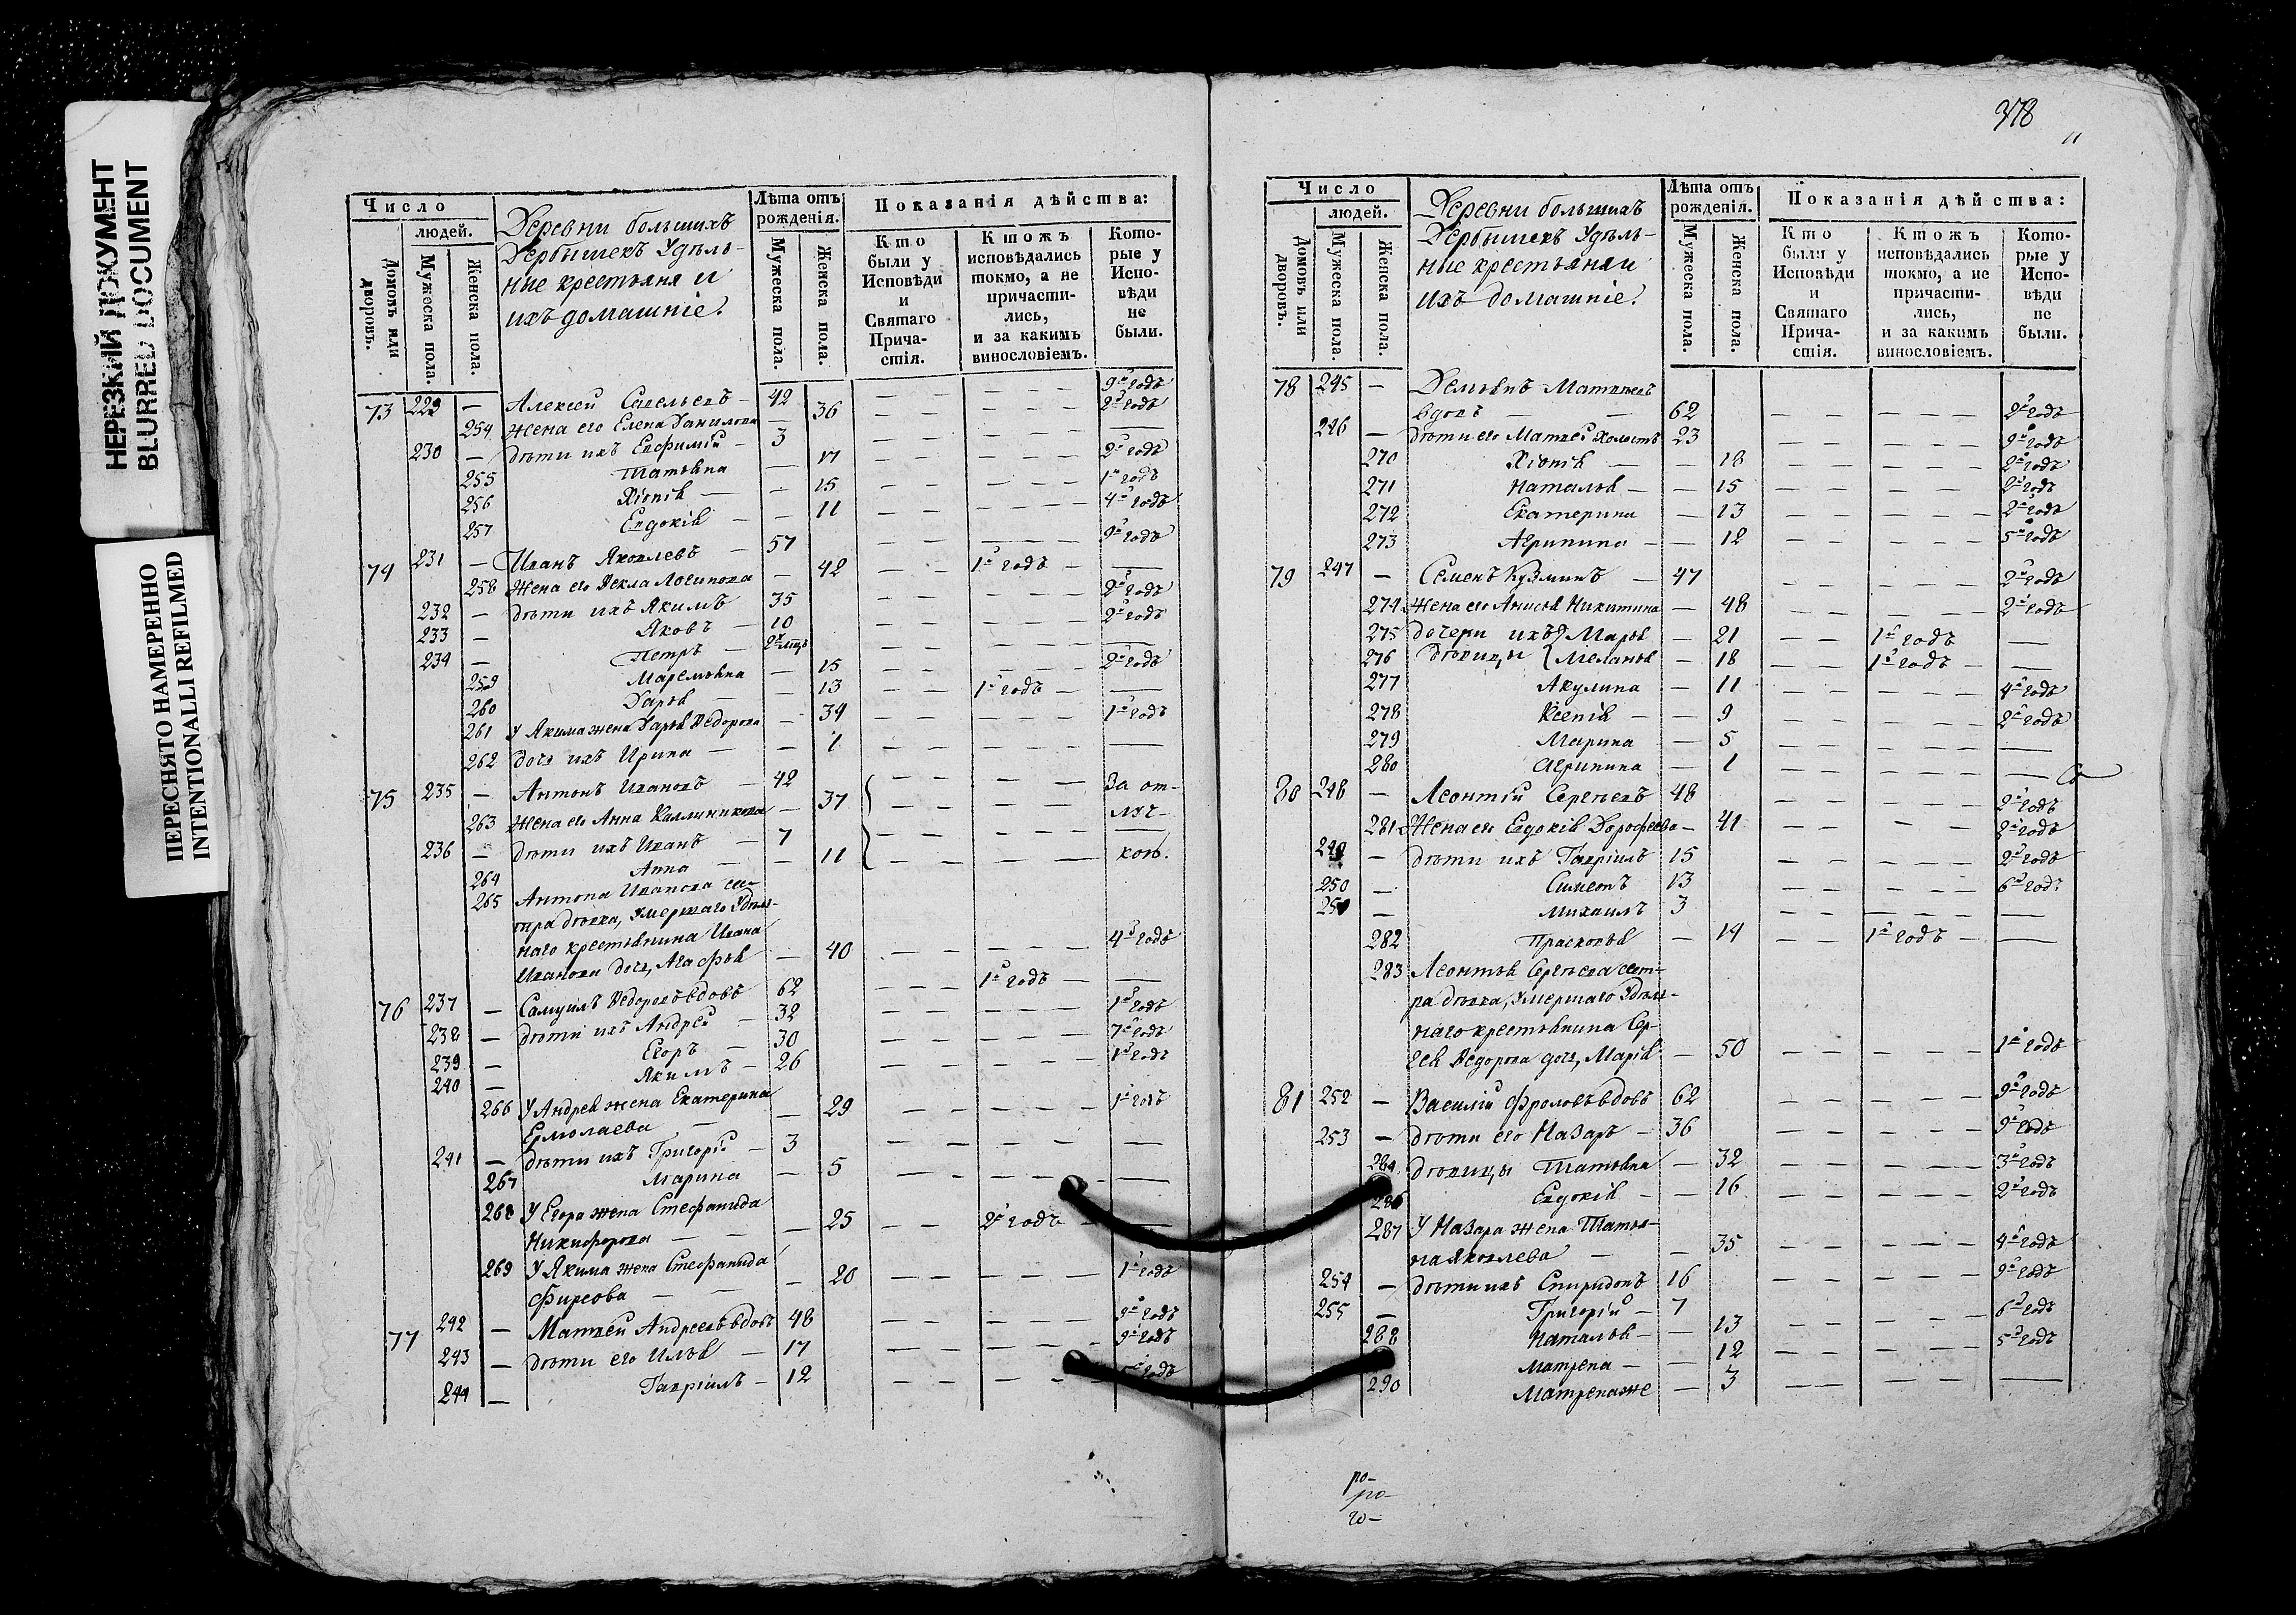 НЕРЕЗКИЙ ДОКУМЕНТ
BLURRED DOCUMENT
ПЕРЕСНЯТО НАМЕРЕННО
INTENTIONALLI REFILMED
Число
людей.
Домовъ или дворовъ.
Мужеска пола.
Женска пола.
Деревни большихъ
Дербышекъ Удѣль-
ные крестьяня и
ихъ домашніе.
Лѣта отъ рожденія.
Мужеска пола.
Женска пола.
Показанія дѣйства:
Кто были у Исповѣди и Святаго Прича-стія.
Ктожъ исповѣдались токмо, а не причасти-лись, и за какимъ винословіемъ.
Кото-рые у Испо-вѣди не были.
73 229 — Алексѣй Савельевъ — 42 2й годъ
254 жена его Елена Данилова — 36 2й годъ
230 — дѣти ихъ Евфимій — 3 —
255 Татьяна — 17 2й годъ
256 Хіонія — 15 1й годъ
257 Евдокія — 11 4й годъ
74 231 — Иванъ Яковлевъ — 57 2й годъ
258 жена его Ѳекла Логинова — 42 1й годъ —
232 — дѣти ихъ Якимъ 35 2й годъ
233 — Яковъ — 10 2й годъ
234 — Петръ — —
259 Маремьяна — 15 2й годъ
260 Дарья — 13 1й годъ —
261 У Якима жена Дарья Ѳедорова — 34 1й годъ
262 дочь ихъ Ирина — 1 —
75 235 — Антонъ Ивановъ — 42 За от-
263 жена его Анна Каллиникова — 37 луч-
236 — дѣти ихъ Иванъ — 7 —
264 Анна — 11 кою.
265 Антона Иванова сес-
тра дѣвка, умершаго Удѣль-
наго крестьянина Ивана
Иванова дочь, Агафья — 40 4й годъ
76 237 — Самуилъ Ѳедоровъ вдовъ 62 1й годъ —
238 — дѣти ихъ Андрей — 32 1й годъ
239 — Егоръ — 30 7й годъ
240 — Якимъ — 26 1й годъ
266 У Андрея жена Екатерина
Ермолаева — 29 1й годъ
241 — дѣти ихъ Григорій — 3 —
267 Марина — 5 —
268 У Егора жена Стефанида
Никифорова — 25 2й годъ —
269 У Якима жена Стефанида
Фирсова — 20 1й годъ
77 242 — Матвей Андреевъ вдовъ 48 9й годъ
243 — дѣти его Илья — 17 9й годъ
244 — Гавріилъ — 12 годъ
378
Число
людей.
Домовъ или дворовъ.
Мужеска пола.
Женска пола.
Деревни большихъ
Дербышекъ Удѣль-
ные крестьяня и
ихъ домашніе.
Лѣта отъ рожденія.
Мужеска пола.
Женска пола.
Показанія дѣйства:
Кто были у Исповѣди и Святаго Прича-стія.
Ктожъ исповѣдались токмо, а не причасти-лись, и за какимъ винословіемъ.
Кото-рые у Испо-вѣди не были.
78 245 — Демьянъ Матвеевъ
вдовъ — 62 2й годъ
246 — дѣти его Матвей холостъ 23 9й годъ
270 Хіонія — 18 2й годъ
271 Наталья — 15 2й годъ
272 Екатерина — 13 2й годъ
273 Агрипина — 12 5й годъ
79 247 — Семенъ Кузминъ — 47 2й годъ
274 жена его Анисья Никитина — 48 2й годъ
275 дочери ихъ Марья — 21 1й годъ —
276 дѣвицы Меланья — 18 1й годъ —
277 Акулина — 11 4й годъ
278 Ксенія — 9 2й годъ
279 Марина — 5 —
280 Агрипина — 1 —
80 248 — Леонтій Сергѣевъ 48 2й годъ
281 Жена его Евдокія Дорофеева — 41 2й годъ
249 — дѣти ихъ Гавріилъ 15 2й годъ
250 — Симеонъ 13 6й годъ
251 — Михаилъ 3 —
282 Прасковья — 14 1й годъ —
283 Леонтья Сергѣева сест-
ра дѣвка, умершаго Удѣль-
наго крестьянина Сер-
гея Ѳедорова дочь, Марія — 50 1й годъ
81 252 — Василій Фроловъ вдовъ 62 9й годъ
253 — дѣти его Назаръ — 36 9й годъ
284 дѣвицы Татьяна — 32 3й годъ
286 Евдокія — 16 2й годъ
287 У Назара жена Татья-
на Яковлева — 35 4й годъ
254 — дѣти ихъ Спиридонъ 16 9й годъ
255 — Григорій — 7 6й годъ
288 Наталья — 13 5й годъ
Матрена — 12
290 Матрена же — 3 —
ро-
го-